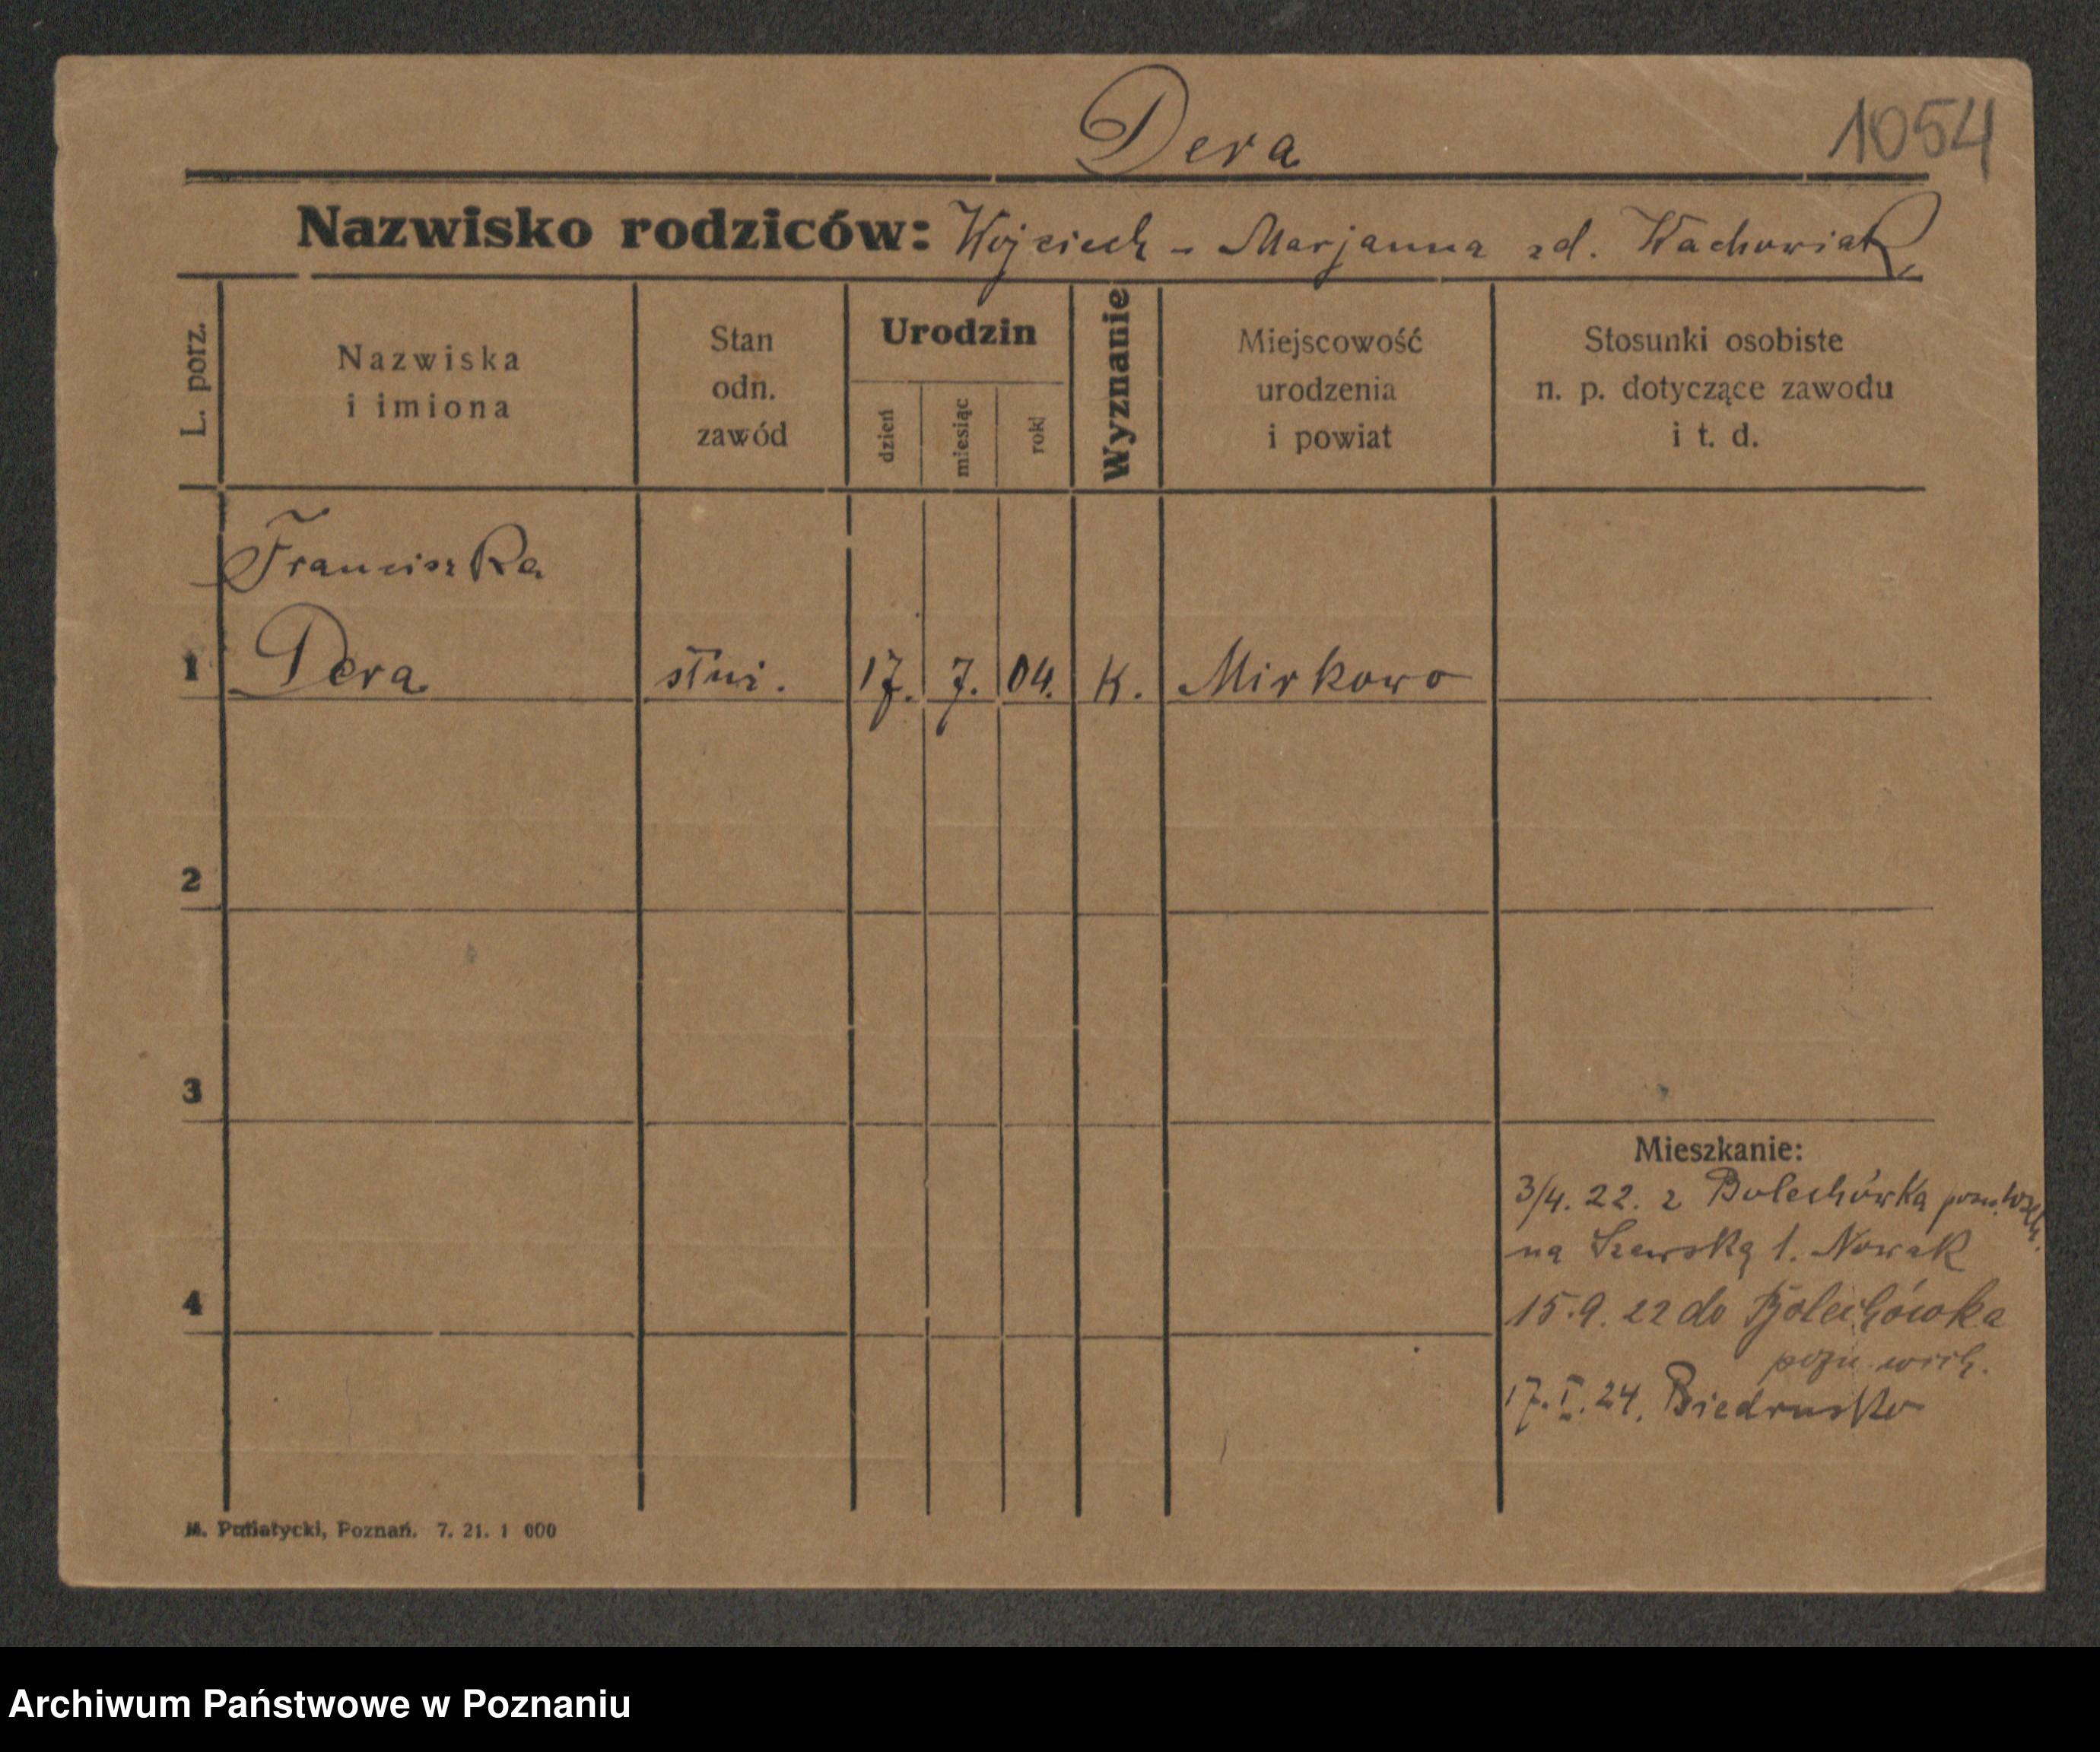 Dera
1054
Nazwisko rodziców: Wojciech - Marjanna zd. Wachowiak
L. porz.
Nazwiska
i imiona
Stan
odn.
zawód
Urodzin
dzień
miesiąc
rok
Wyznanie
Miejscowość
urodzenia
i powiat
Stosunki osobiste
n. p. dotyczące zawodu
i t. d.
Franciszka
1 Dera służ. 17. 7. 04. K. Mirkowo
2
3
Mieszkanie:
3/4. 22. z Bolechówka pozn.
na Szewską 1. Nowak
4
15.9.22 do Bolechówka
pozn. wsch.
17.I.24. Biedrusko
M. Putiatycki, Poznań. 7. 21. 1 000
Archiwum Państwowe w Poznaniu